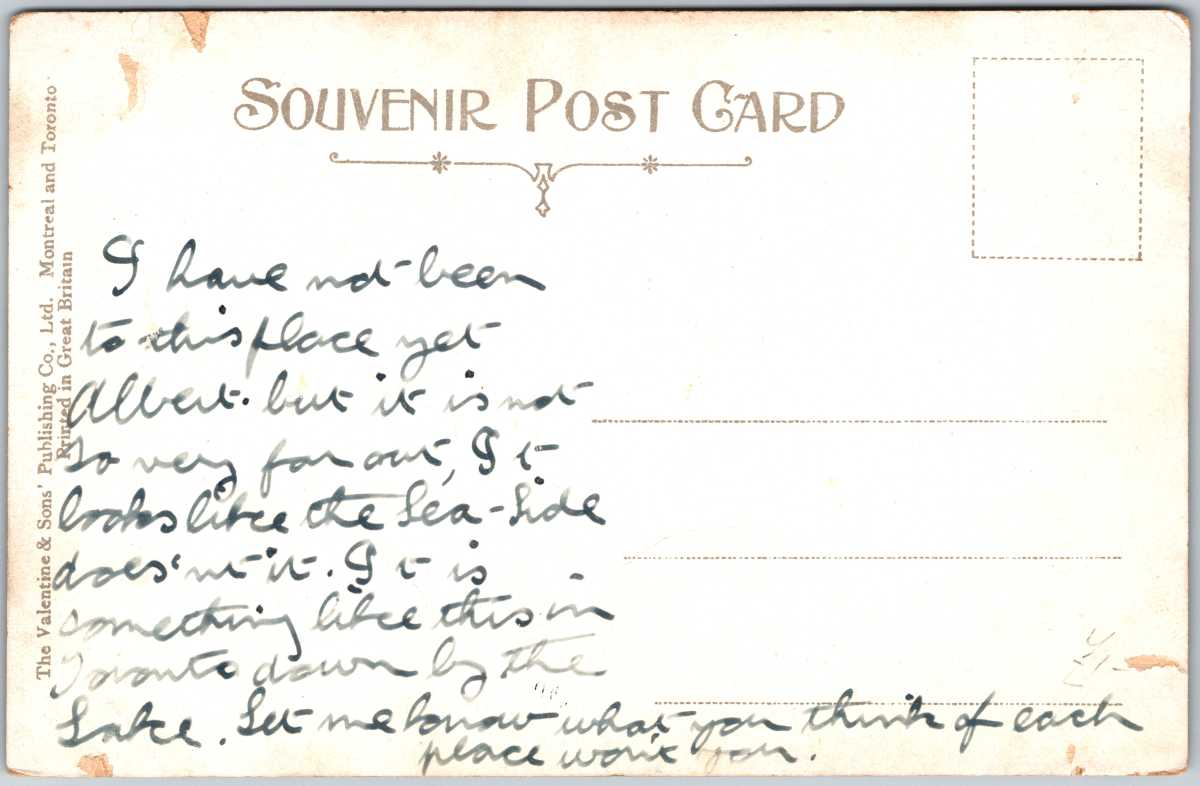 SOUVENIR POST CARD
The Valentine & Sons' Publishing Co., Ltd. Montreal and Toronto
Printed in Great Britain
I have not been
to this place yet
Albert. but it is not
so very far out, It
looks like the Sea-Side
does'nt it. It is
something like this in
Toronto down by the
Lake. Let me know what you think of each
place won't you.